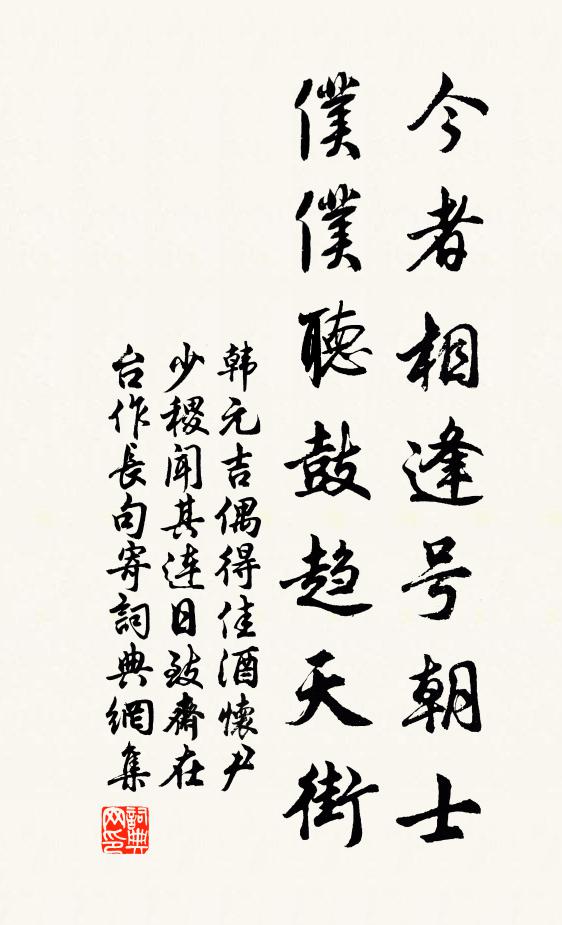 今者相逢号朝士
僕僕聽鼓趋天街
韩元吉偶得佳酒懷尹
少稷闻其连日致齋在
台作長句寄詞典網集
詞典
网印